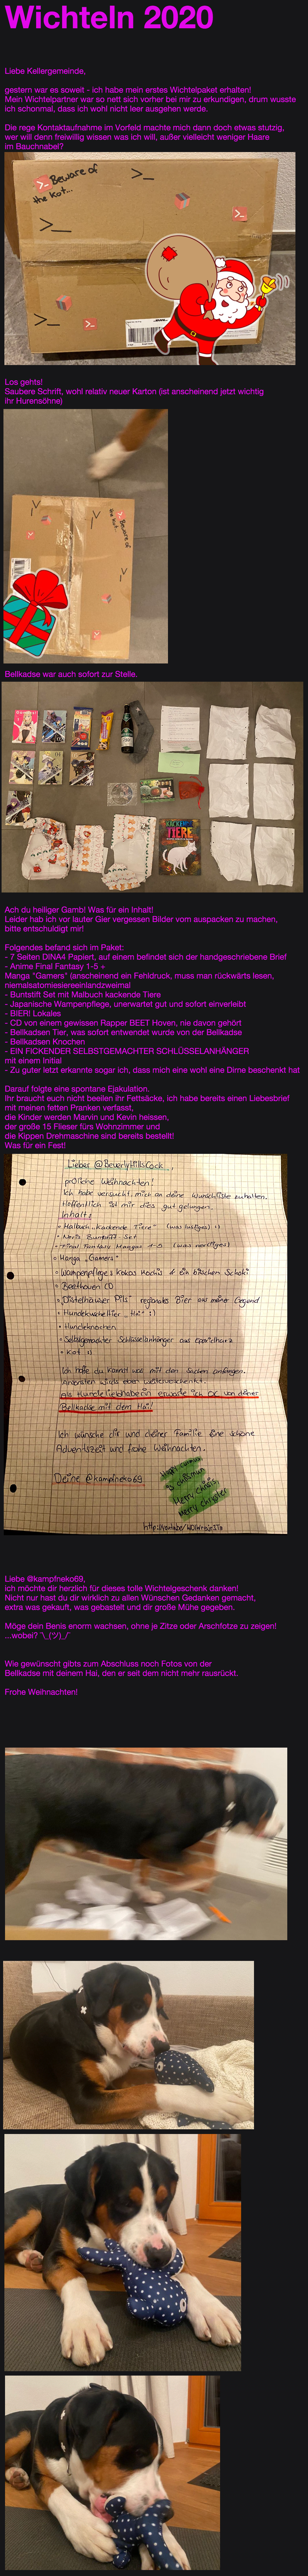 Wichteln 2020
Liebe Kellergemeinde,
gestern war es soweit - ich habe mein erstes Wichtelpaket erhalten!
Mein Wichtelpartner war so nett sich vorher bei mir zu erkundigen, drum wusste
ich schonmal, dass ich wohl nicht leer ausgehen werde.
Die rege Kontaktaufnahme im Vorfeld machte mich dann doch etwas stutzig,
wer will denn freiwillig wissen was ich will, außer vielleicht weniger Haare
im Bauchnabel?
Beware of
the Kat...
>_
>_
>_
Los gehts!
Saubere Schrift, wohl relativ neuer Karton (ist anscheinend jetzt wichtig
ihr Hurensöhne)
Beware of
the Kat
Bellkadse war auch sofort zur Stelle.
KACKENDE
TIERE
Ach du heiliger Gamb! Was für ein Inhalt!
Leider hab ich vor lauter Gier vergessen Bilder vom auspacken zu machen,
bitte entschuldigt mir!
Folgendes befand sich im Paket:
- 7 Seiten DINA4 Papiert, auf einem befindet sich der handgeschriebene Brief
- Anime Final Fantasy 1-5 +
Manga "Gamers" (anscheinend ein Fehldruck, muss man rückwärts lesen,
niemalsatomiesiereeinlandzweimal
- Buntstift Set mit Malbuch kackende Tiere
- Japanische Wampenpflege, unerwartet gut und sofort einverleibt
- BIER! Lokales
- CD von einem gewissen Rapper BEET Hoven, nie davon gehört
- Bellkadsen Tier, was sofort entwendet wurde von der Bellkadse
- Bellkadsen Knochen
- EIN FICKENDER SELBSTGEMACHTER SCHLÜSSELANHÄNGER
mit einem Initial
- Zu guter letzt erkannte sogar ich, dass mich eine wohl eine Dime beschenkt hat
Darauf folgte eine spontane Ejakulation.
Ihr braucht euch nicht beeilen ihr Fettsäcke, ich habe bereits einen Liebesbrief
mit meinen fetten Pranken verfasst,
die Kinder werden Marvin und Kevin heissen,
der große 15 Flieser fürs Wohnzimmer und
die Kippen Drehmaschine sind bereits bestellt!
Was für ein Fest!
Lieber @BeverlyHillsCock,
fröliche Weihnachten!
Ich habe versucht, mich an deine Wunschliste zuhalten.
Hoffentlich ist mir dies gut gelungen.
Inhalt:
• Malbuch "Kackende Tiere" (was lustiges) :)
• Buntstift Set
• Final Fantasy Mangas 1-5 (was wertiges)
• Manga "Gamers"
• Wampenpflege: Kokos Mochis & ein bisschen Schoki
• Beethoven CD
• "Distelhäuser Pils" regionales Bier aus meiner Gegend
• Hundekuscheltier "Hai" :)
• Hundeknochen
• Selbstgemachter Schlüsselanhänger aus Epoxidharz
• Kat :)
Ich hoffe du kannst was mit den Sachen anfangen.
Ansonsten wirds eben weiterverschenkt.
Als Hundeliebhaberin erwarte ich OC von deiner
Bellkadse mit dem Hai!
Ich wünsche dir und deiner Familie eine schöne
Adventszeit und frohe Weihnachten.
Deine @kampfneko69
Merry chrisis,
Merry chrysler
Liebe @kampfneko69,
ich möchte dir herzlich für dieses tolle Wichtelgeschenk danken!
Nicht nur hast du dir wirklich zu allen Wünschen Gedanken gemacht,
extra was gekauft, was gebastelt und dir große Mühe gegeben.
Möge dein Benis enorm wachsen, ohne je Zitze oder Arschfotze zu zeigen!
...wobei? ¯\_(ツ)_/¯
Wie gewünscht gibts zum Abschluss noch Fotos von der
Bellkadse mit deinem Hai, den er seit dem nicht mehr rausrückt.
Frohe Weihnachten!